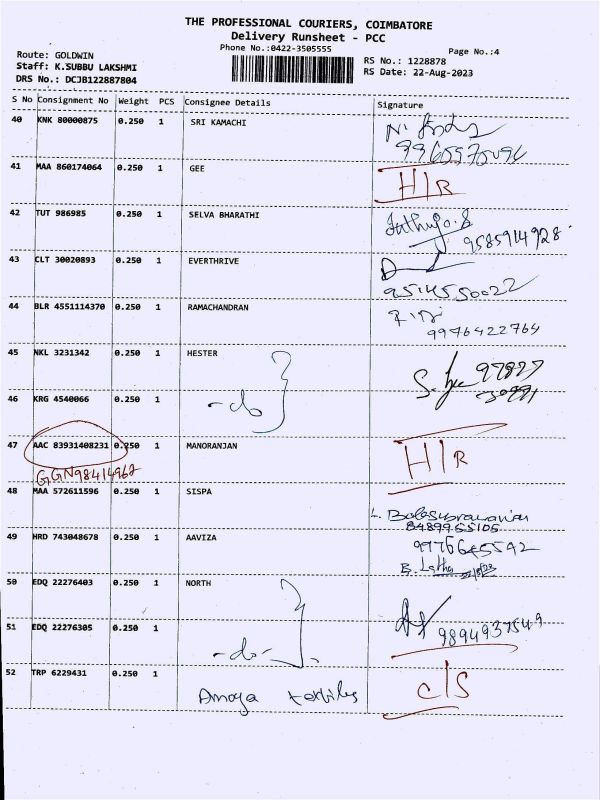 THE PROFESSIONAL COURIERS, COIMBATORE
Delivery Runsheet - PCC
Phone No.:0422-3505555
Page No.:4
Route: GOLDWIN
Staff: K.SUBBU LAKSHMI
DRS No.: DCJB122887804
RS No.: 1228878
RS Date: 22-Aug-2023
S No Consignment No Weight PCS Consignee Details Signature
40 KNK 80000875 0.250 1 SRI KAMACHI
41 MAA 860174064 0.250 1 GEE H/R
42 TUT 986985 0.250 1 SELVA BHARATHI
9585914928
43 CLT 30020893 0.250 1 EVERTHRIVE
9514550022
44 BLR 4551114370 0.250 1 RAMACHANDRAN
9976422764
45 NKL 3231342 0.250 1 HESTER
46 KRG 4540066 0.250 1 -do
47 AAC 83931408231 0.250 1 MANORANJAN H/R
GGN98414962
48 MAA 572611596 0.250 1 SISPA
8489965105
49 HRD 743048678 0.250 1 AAVIZA
9976645542
B. Latha
50 EDQ 22276403 0.250 1 NORTH
51 EDQ 22276305 0.250 1 -do-
9894937549
52 TRP 6229431 0.250 1 Amoga textiles C/S